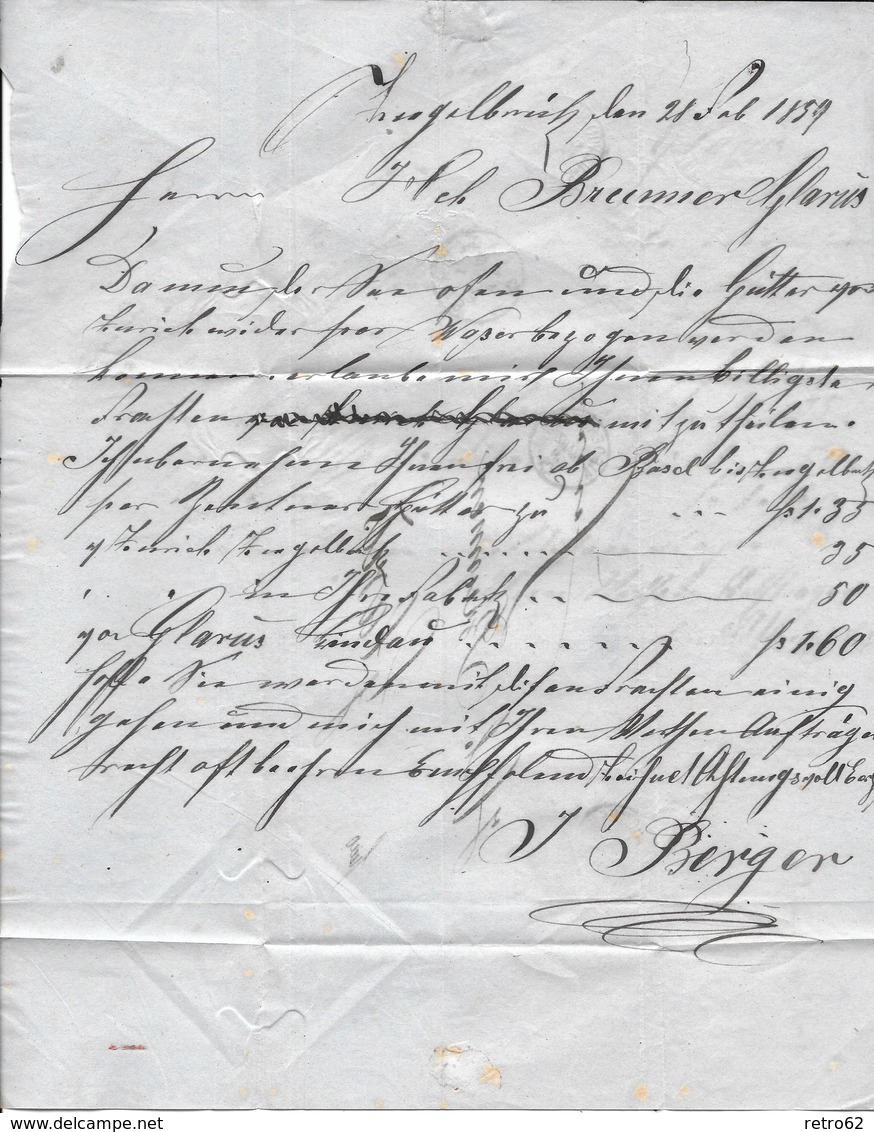 Ziegelbrück den 28 Feb 1859
Herrn Heb Brunner Glarus
Da nun der See ofen und die Gütter von
Zürich wider per Waser bezogen werden
können erlaube mich Ihnen billigste
Frachten mitzutheilen.
Ich ubernehme Ihnen frei ab Basel bis Ziegelbrk
per Zentner Gütter zu ... fr 1.35
" Zürich Ziegelbrk ...... 35
" " in Ihre Fabrk .. 50
von Glarus Lindau ........ fr 1.60
hoffe Sie werden mit disen Frachten einig
gehen und mich mit Ihren Werthen Aufträgen
recht oft beehren Empfelend Zeichnet Achtungsvoll
J Berger
delcampe.net
retro62